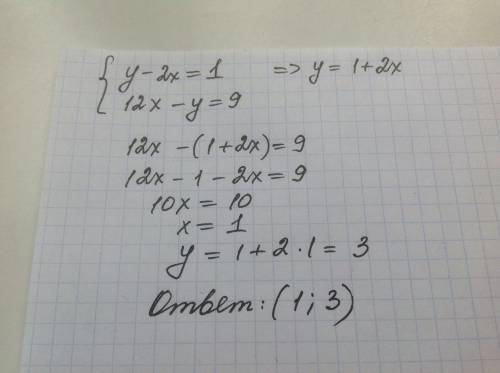 { y - 2x = 1 => y = 1 + 2x
12x - y = 9
12x - (1 + 2x) = 9
12x - 1 - 2x = 9
10x = 10
x = 1
y = 1 + 2 · 1 = 3
Ответ: (1; 3)